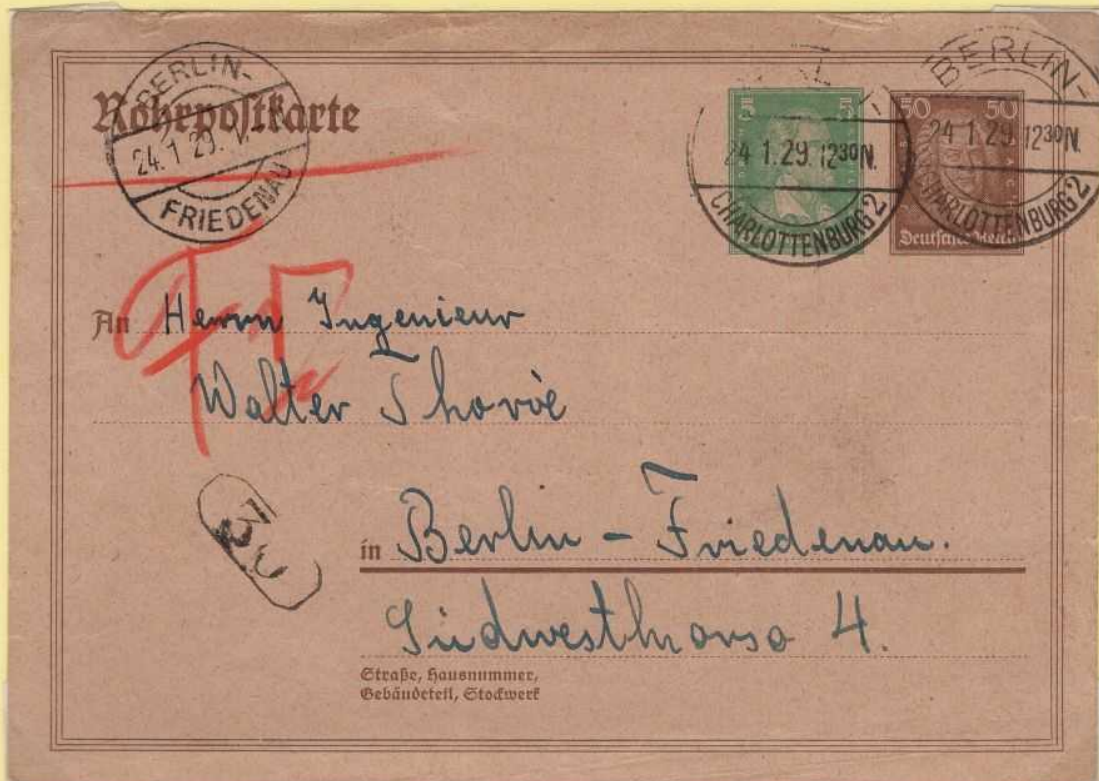 Rohrpostkarte
BERLIN-
24.1.29.
FRIEDENAU
5 5
24 1.29. 12³⁰N.
CHARLOTTENBURG 2
50 50
BERLIN-
24 1.29. 12³⁰N.
CHARLOTTENBURG 2
Deutsches Reich
An Herrn Ingenieur
Walter Thoröe
in Berlin - Friedenau.
Südwestkorso 4.
Straße, Hausnummer,
Gebäudeteil, Stockwerk